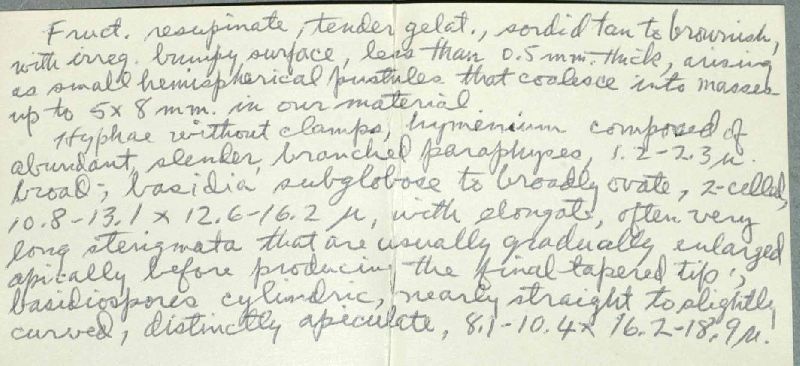 Fruct. resupinate, tender gelat., sordid tan to brownish,
with irreg. bumpy surface, less than 0.5 mm. thick, arising
as small hemispherical pustules that coalesce into masses
up to 5 x 8 mm. in our material
Hyphae without clamps, hymenium composed of
abundant, slender, branched paraphyses, 1.2-2.3 µ.
broad; basidia subglobose to broadly ovate, 2-celled,
10.8-13.1 x 12.6-16.2 µ, with elongate, often very
long sterigmata that are usually gradually enlarged
apically before producing the final tapered tip;
basidiospores cylindric, nearly straight to slightly
curved, distinctly apiculate, 8.1-10.4 x 16.2-18.9 µ.